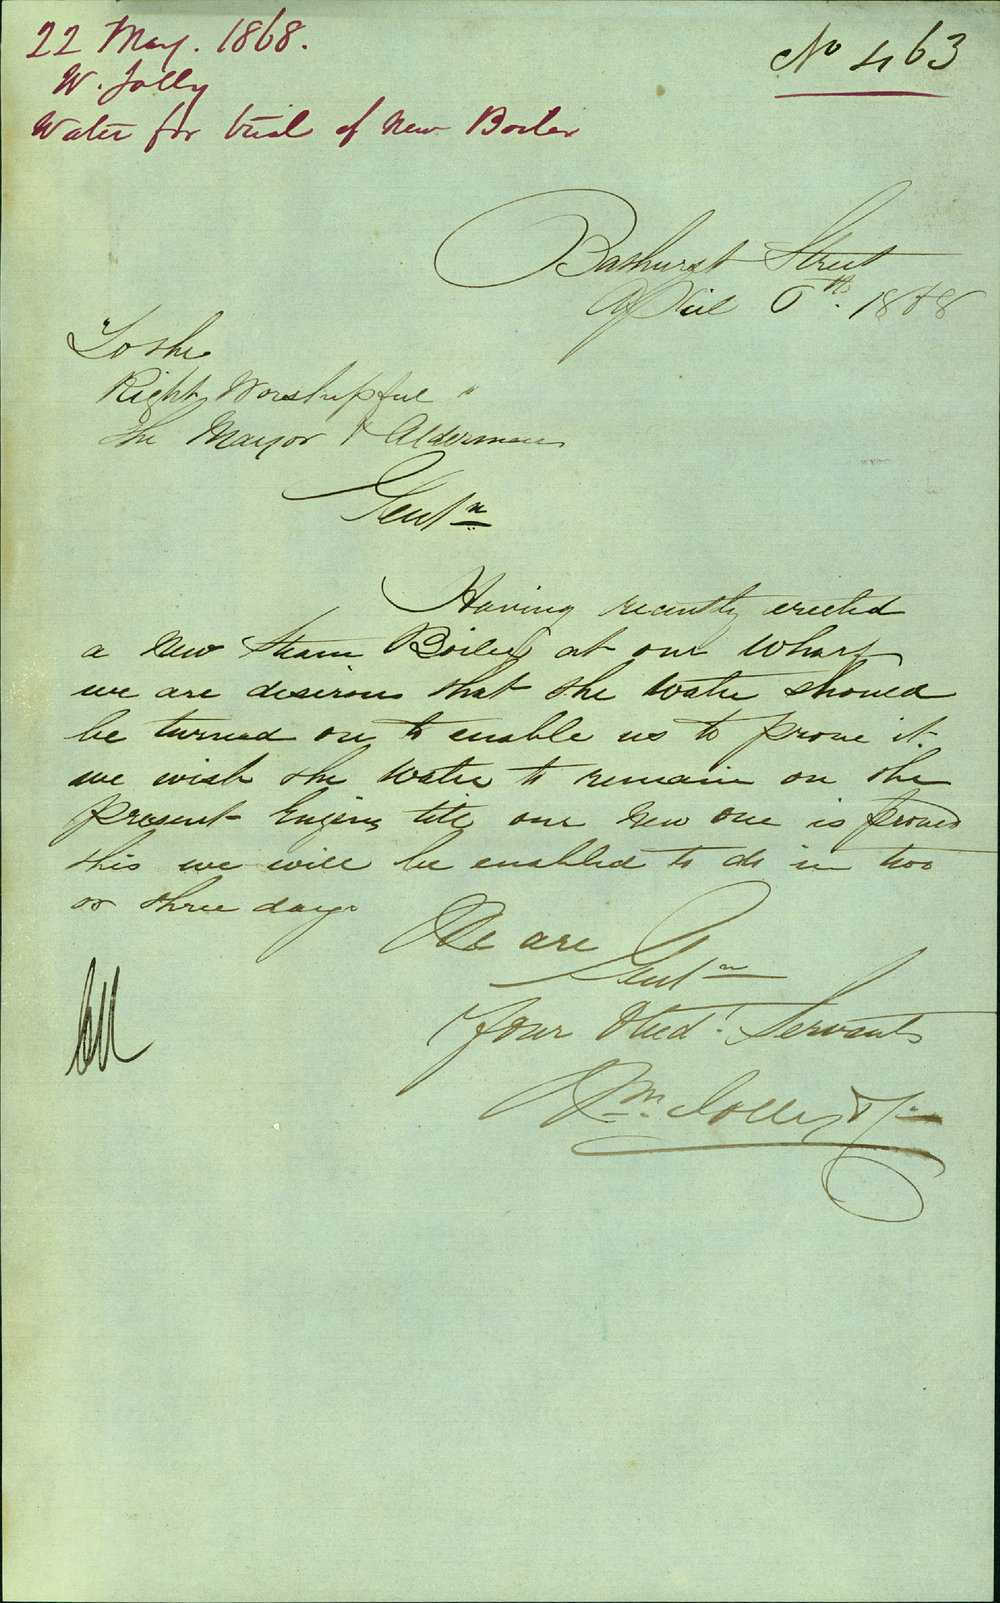 22 May. 1868.
W. Jolly
Water for trial of New Boiler
No 463
Bathurst Street
April 6th. 1868
To the
Right Worshipful "
The Mayor & Aldermen
Gentn
Having recently erected
a New Steam Boiler at our Wharf
we are desirous that the Water should
be turned on to enable us to prove it.
we wish the Water to remain on the
present Engine till our New one is proved
this we will be enabled to do in two
or three days
We are
Gentn
Your Obed. Servants
Wm. Jolly & Co